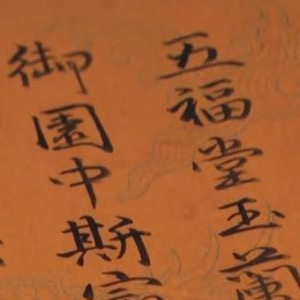 五福堂玉蘭
御園中斯